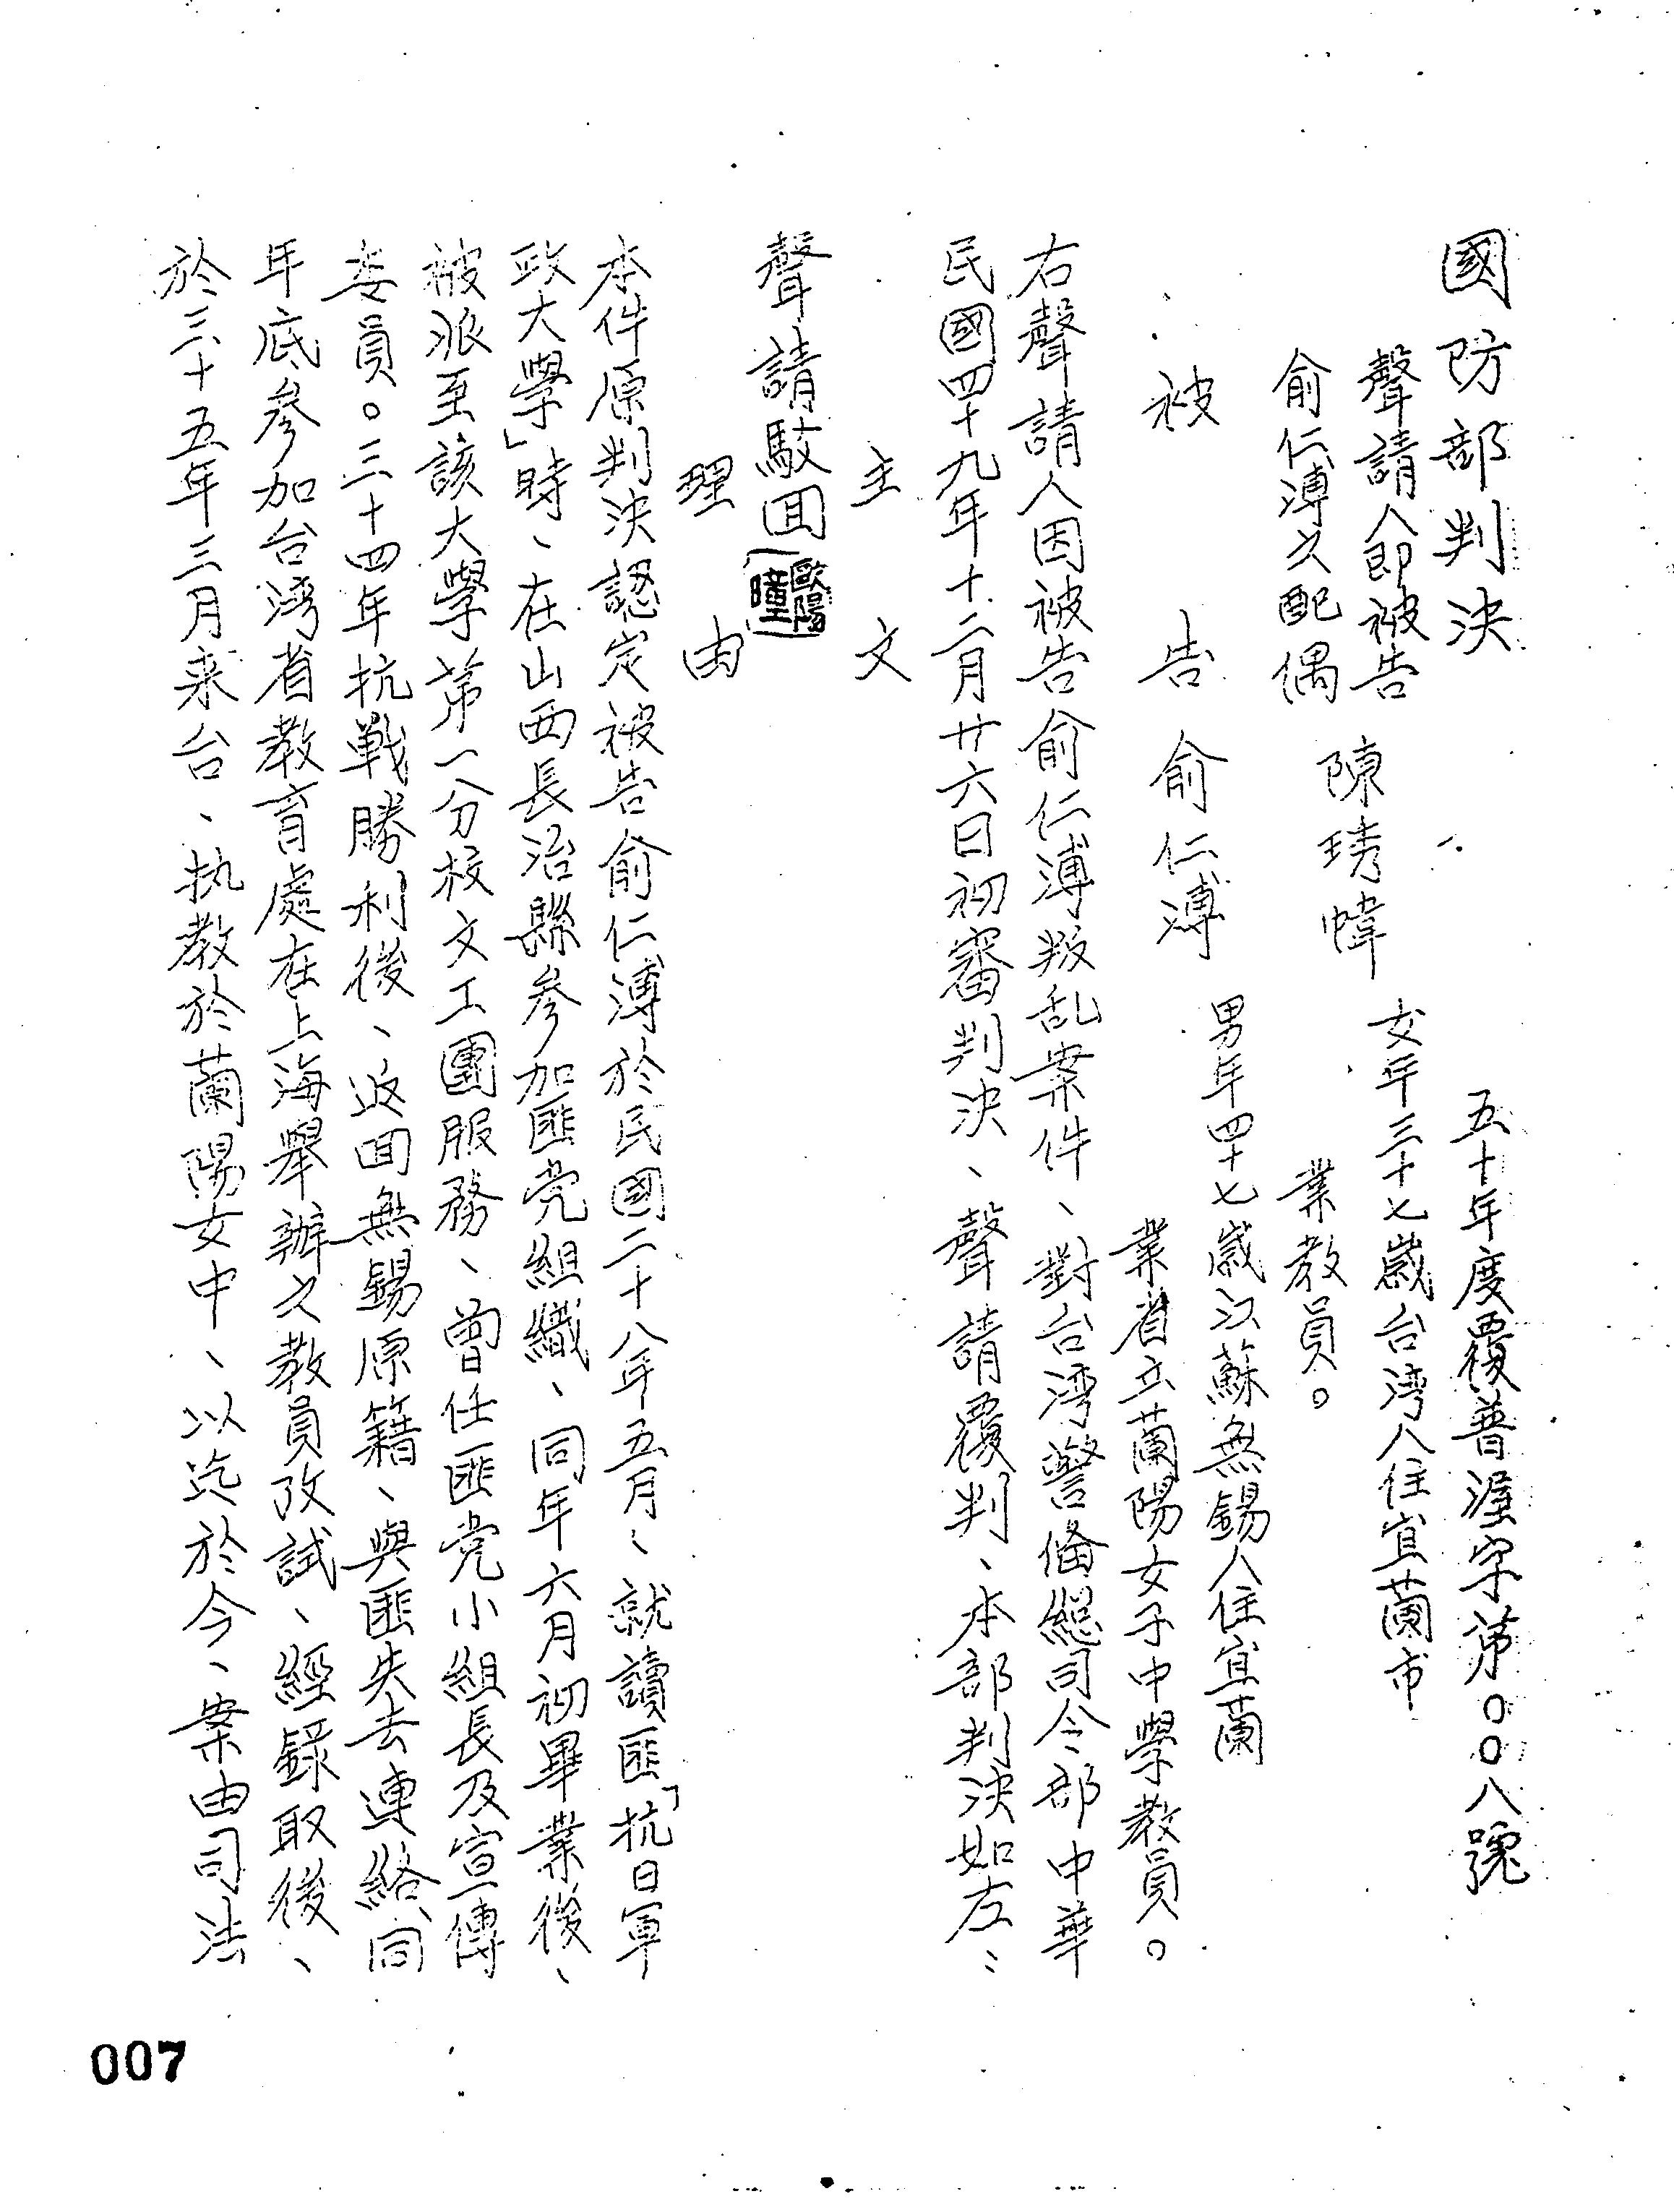 國防部判決
五十年度覆普渥字第〇〇八號
聲請人即被告
俞仁溥之配偶
陳琇幃
女年三十七歲台湾人住宜蘭市
業教員。
被告俞仁溥
男年四十七歲江蘇無錫人住宜蘭
業省立蘭陽女子中學教員。
右聲請人因被告俞仁溥叛乱案件、對台湾警俻總司令部中華
民國四十九年十二月廿六日初審判決、聲請覆判、本部判決如左：
主文
聲請駁回
歐陽瞳
理由
本件原判決認定被告俞仁溥於民國二十八年五月、就讀匪「抗日軍
政大學」時、在山西長治縣参加匪党組織、同年六月初畢業後、
被派至該大學第一分校文工團服務、曾任匪党小組長及宣傳
委員。三十四年抗戰勝利後、返回無錫原籍、與匪失去連絡、同
年底参加台湾省教育處在上海舉辦之教員攷試、經録取後、
於三十五年三月来台、执教於蘭陽女中、以迄於今、案由司法
007